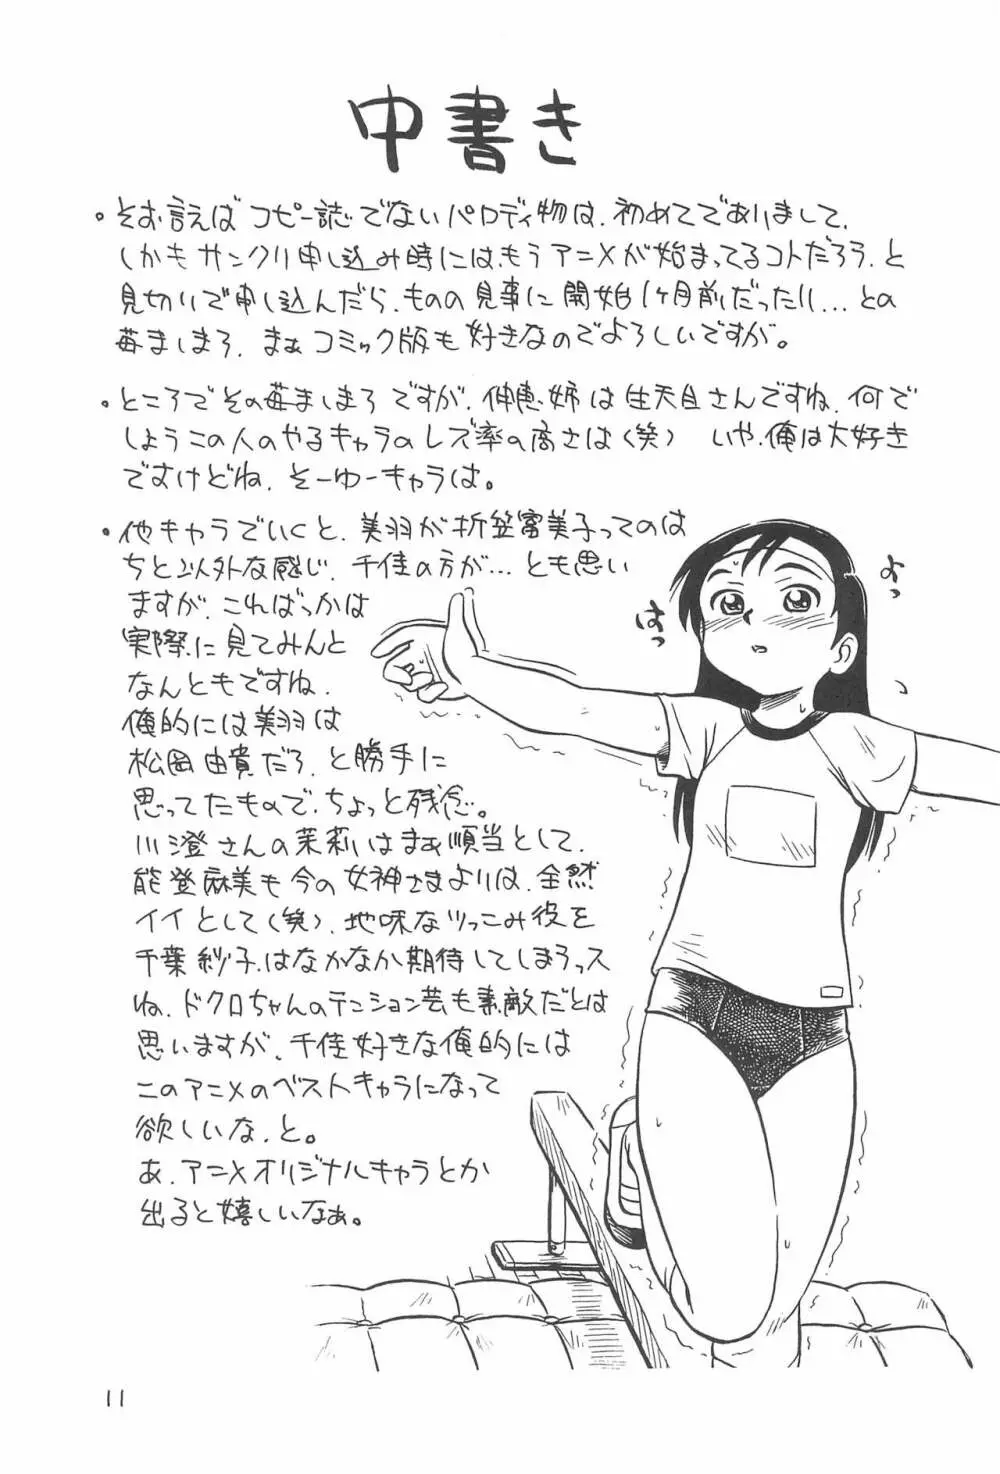 中書き
。そお言えばコピー誌でないパロディ物は、初めてでありまして、
しかもサンクリ申し込み時には、もうアニメが始まってるコトだろう、と
見切りで申し込んだら、ものの見事に開始1ヶ月前だったり…との
苺ましまろ、まぁコミック版も好きなのでよろしいですが。
。ところでその苺ましまろですが、伸恵姉は生天目さんですね、何で
しょうこの人のやるキャラのレズ率の高さは(笑) いや、俺は大好き
ですけどね、そーゆーキャラは。
。他キャラでいくと、美羽が折笠富美子ってのは
ちと以外な感じ、千佳の方が…とも思い
ますが、こればっかは
実際に見てみんと
なんともですね、
俺的には美羽は
松岡由貴だろ、と勝手に
思ってたもので、ちょっと残念。
川澄さんの茉莉はまぁ順当として、
能登麻美も今の女神さまよりは、全然
イイとして(笑)、地味なツっこみ役を
千葉紗子、はなかなか期待してしまうっス
ね、ドクロちゃんのテンション芸も素敵だとは
思いますが、千佳好きな俺的には
このアニメのベストキャラになって
欲しいな、と。
あ、アニメオリジナルキャラとか
出ると嬉しいなぁ。
よっ
はっ
11